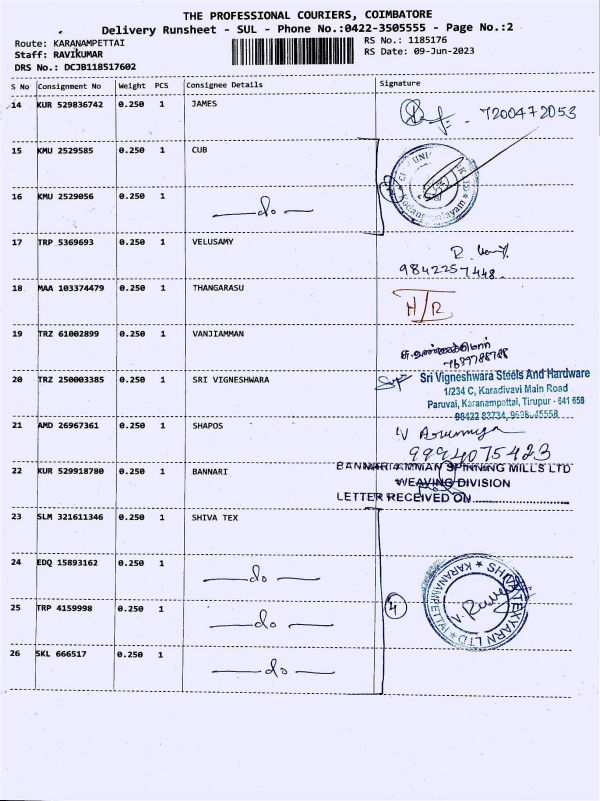 THE PROFESSIONAL COURIERS, COIMBATORE
Delivery Runsheet - SUL - Phone No.:0422-3505555 - Page No.:2
Route: KARANAMPETTAI
RS No.: 1185176
Staff: RAVIKUMAR
RS Date: 09-Jun-2023
DRS No.: DCJB118517602
S No Consignment No Weight PCS Consignee Details Signature
14 KUR 529836742 0.250 1 JAMES 7200472053
15 KMU 2529585 0.250 1 CUB
16 KMU 2529056 0.250 1 —do—
17 TRP 5369693 0.250 1 VELUSAMY
9842257448
18 MAA 103374479 0.250 1 THANGARASU H/R
19 TRZ 61002899 0.250 1 VANJIAMMAN
20 TRZ 250003385 0.250 1 SRI VIGNESHWARA Sri Vigneshwara Steels And Hardware
1/234 C, Karadivavi Main Road
Paruvai, Karanampettai, Tirupur - 641 658
21 AMD 26967361 0.250 1 SHAPOS
9994075423
22 KUR 529918780 0.250 1 BANNARI BANNARI AMMAN SPINNING MILLS LTD
WEAVING DIVISION
LETTER RECEIVED ON
23 SLM 321611346 0.250 1 SHIVA TEX
24 EDQ 15893162 0.250 1 —do—
SHIVA TEXYARN LTD
KARANAMPETTAI
25 TRP 4159998 0.250 1 —do— 4
26 SKL 666517 0.250 1 —do—